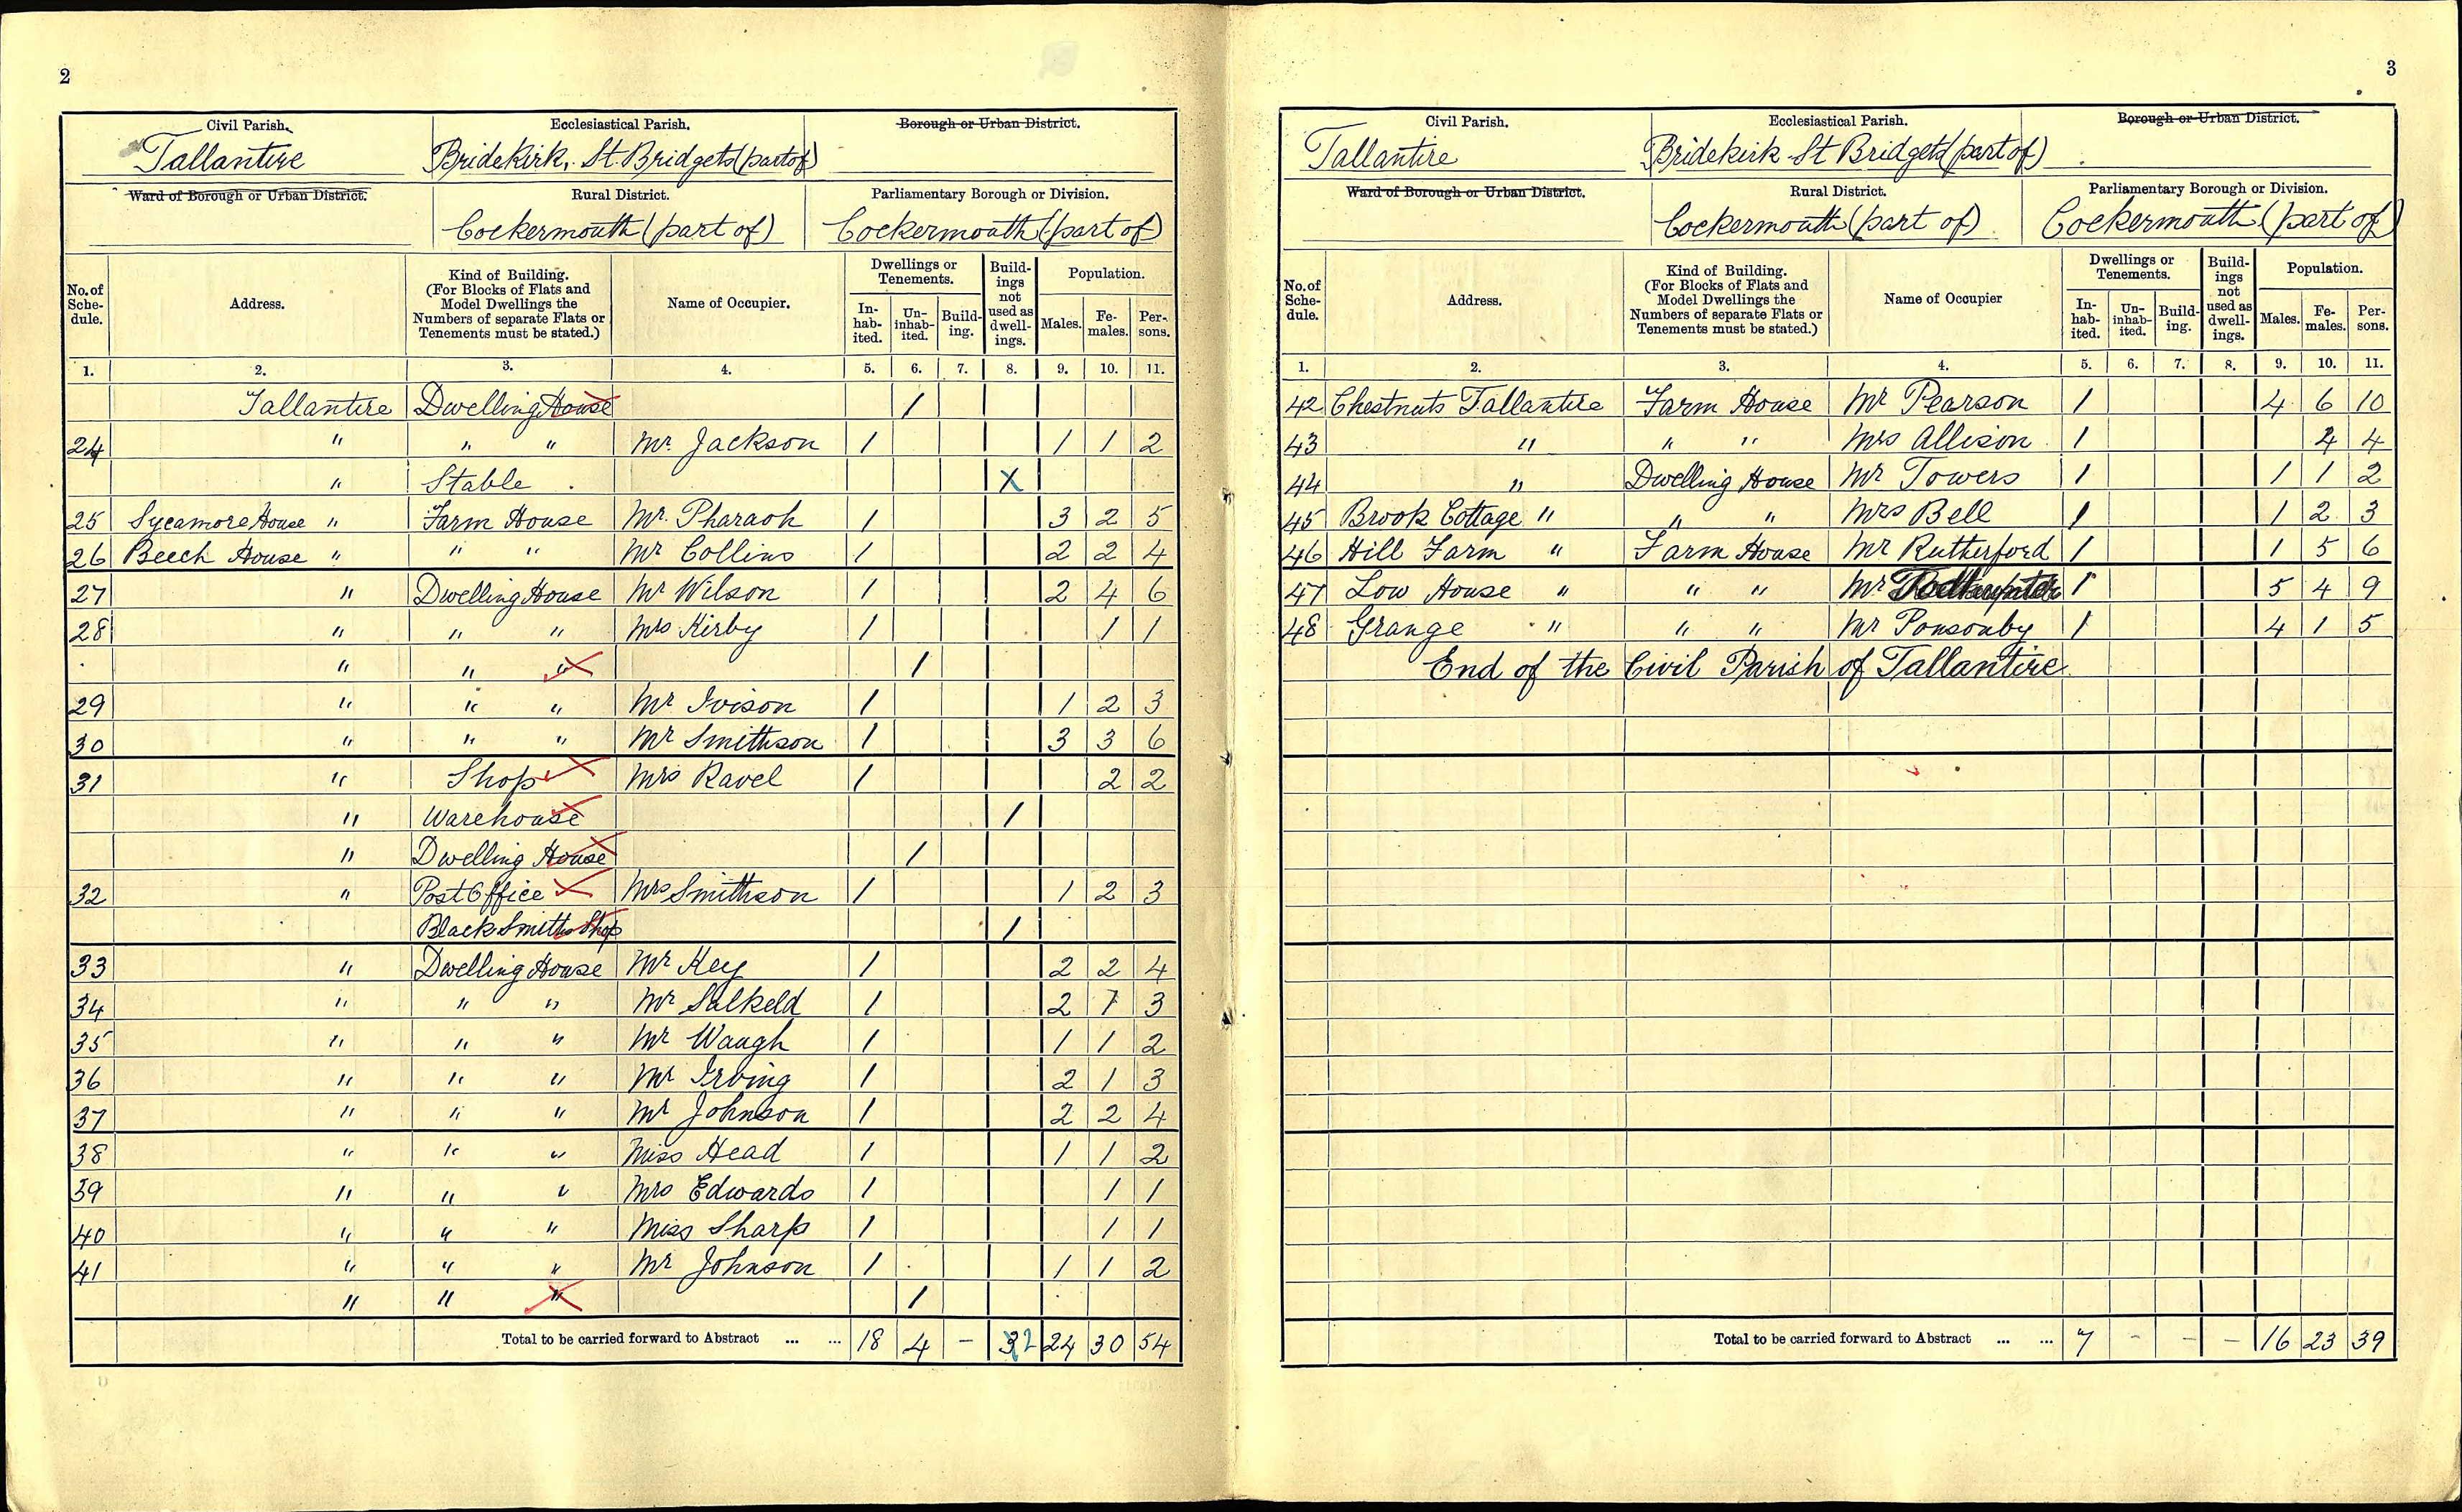 2
Civil Parish. Ecclesiastical Parish. Borough or Urban District.
Tallantire Bridekirk, St. Bridgets (part of)
Ward of Borough or Urban District. Rural District. Parliamentary Borough or Division.
Cockermouth (part of) Cockermouth (part of)
No. of Schedule. Address. Kind of Building. (For Blocks of Flats and Model Dwellings the Numbers of separate Flats or Tenements must be stated.) Name of Occupier. Dwellings or Tenements. Inhabited. Uninhabited. Building. Buildings not used as dwellings. Population. Males. Females. Persons.
1. 2. 3. 4. 5. 6. 7. 8. 9. 10. 11.
Tallantire Dwelling House 1
24 " " " Mr. Jackson 1 1 1 2
" Stable X
25 Sycamore House " Farm House Mr. Pharaoh 1 3 2 5
26 Beech House " " " Mr Collins 1 2 2 4
27 " Dwelling House Mr Wilson 1 2 4 6
28 " " " Mrs Kirby 1 1 1
" " " 1
29 " " " Mr Ivison 1 1 2 3
30 " " " Mr Smithson 1 3 3 6
31 " Shop Mrs Ravel 1 2 2
" Warehouse 1
" Dwelling House 1
32 " Post Office Mrs Smithson 1 1 2 3
Black Smiths Shop 1
33 " Dwelling House Mr Key 1 2 2 4
34 " " " Mr Salkeld 1 2 1 3
35 " " " Mr Waugh 1 1 1 2
36 " " " Mr Irving 1 2 1 3
37 " " " Mr Johnson 1 2 2 4
38 " " " Miss Head 1 1 1 2
39 " " " Mrs Edwards 1 1 1
40 " " " Miss Sharp 1 1 1
41 " " " Mr Johnson 1 1 1 2
" " " 1
Total to be carried forward to Abstract ... ... 18 4 - 32 24 30 54
3
Civil Parish. Ecclesiastical Parish. Borough or Urban District.
Tallantire Bridekirk St Bridgets (part of)
Ward of Borough or Urban District. Rural District. Parliamentary Borough or Division.
Cockermouth (part of) Cockermouth (part of)
No. of Schedule. Address. Kind of Building. (For Blocks of Flats and Model Dwellings the Numbers of separate Flats or Tenements must be stated.) Name of Occupier Dwellings or Tenements. Inhabited. Uninhabited. Building. Buildings not used as dwellings. Population. Males. Females. Persons.
1. 2. 3. 4. 5. 6. 7. 8. 9. 10. 11.
42 Chestnuts Tallantire Farm House Mr Pearson 1 4 6 10
43 " " " Mrs Allison 1 4 4
44 " Dwelling House Mr Towers 1 1 1 2
45 Brook Cottage " " " Mrs Bell 1 1 2 3
46 Hill Farm " Farm House Mr Rutherford 1 1 5 6
47 Low House " " " Mr 1 5 4 9
48 Grange " " " Mr Ponsonby 1 4 1 5
End of the Civil Parish of Tallantire
Total to be carried forward to Abstract ... ... 7 - - - 16 23 39